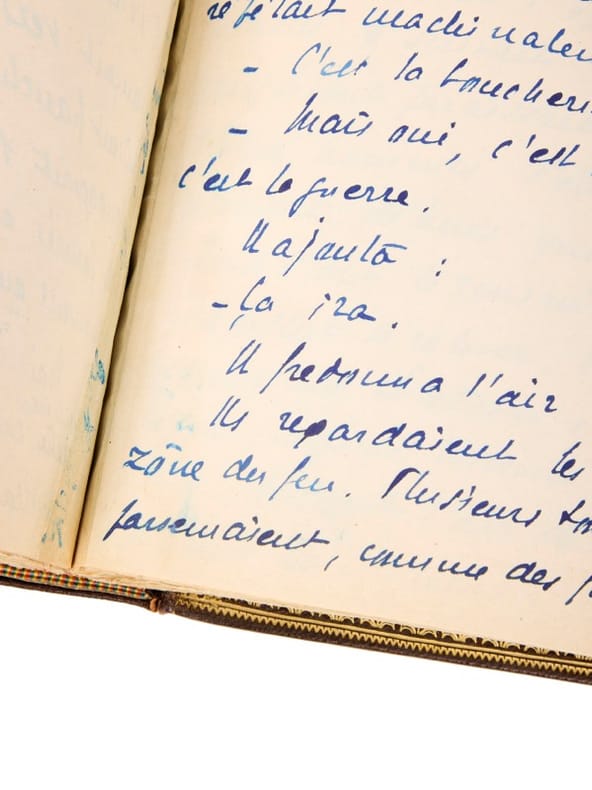 répétait machinalem
- C'est la boucheri
- Mais oui, c'est
c'est la guerre.
Il ajouta :
- Ça ira.
Il fredonna l'air
Ils regardaient les
zône du feu. Plusieurs to
parsemaient, comme des p